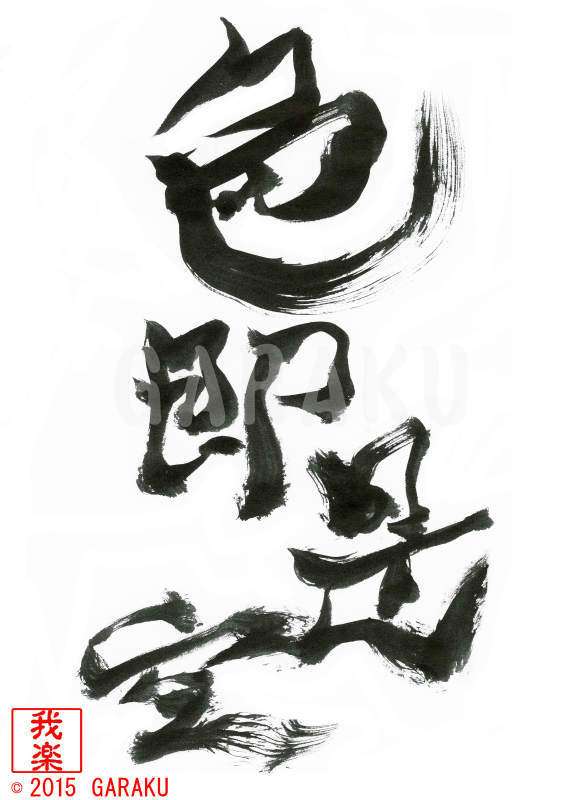 色
即
是
空
GARAKU
我
楽
© 2015 GARAKU